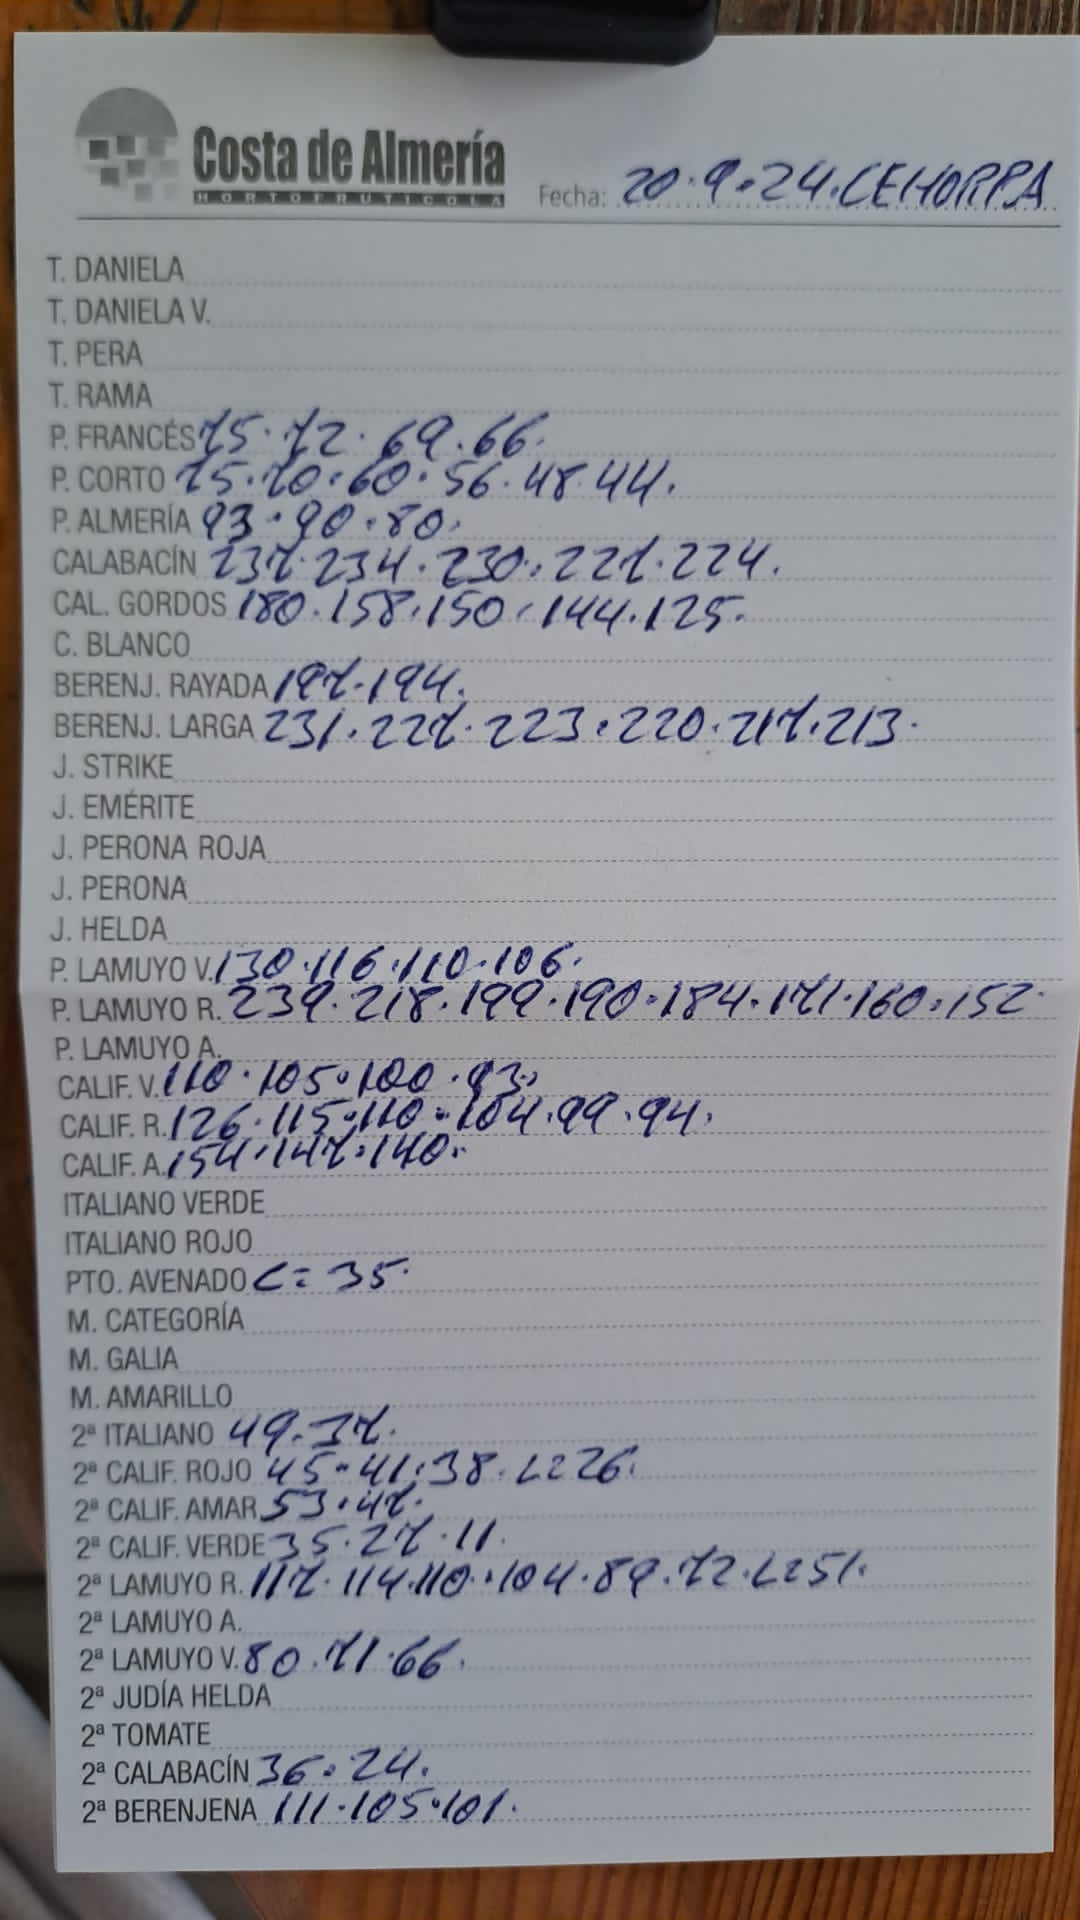 Costa de Almería
HORTOFRUTICOLA
Fecha: 20.9.24.CEHORPA
T. DANIELA
T. DANIELA V.
T. PERA
T. RAMA
P. FRANCÉS 75.72.69.66.
P. CORTO 75.70.60.56.48.44.
P. ALMERÍA 93.90.80.
CALABACÍN 237.234.230.227.224.
CAL. GORDOS 180.158.150.144.125.
C. BLANCO
BERENJ. RAYADA 197.194.
BERENJ. LARGA 231.227.223.220.217.213.
J. STRIKE
J. EMÉRITE
J. PERONA ROJA
J. PERONA
J. HELDA
P. LAMUYO V. 130.116.110.106.
P. LAMUYO R. 239.218.199.190.184.171.160.152.
P. LAMUYO A.
CALIF. V. 110.105.100.93.
CALIF. R. 126.115.110.104.99.94.
CALIF. A. 154.147.140.
ITALIANO VERDE
ITALIANO ROJO
PTO. AVENADO C=35.
M. CATEGORÍA
M. GALIA
M. AMARILLO
2ª ITALIANO 49.37.
2ª CALIF. ROJO 45.41.38.L=26.
2ª CALIF. AMAR 53.47.
2ª CALIF. VERDE 35.27.11.
2ª LAMUYO R. 117.114.110.104.89.72.L=51.
2ª LAMUYO A.
2ª LAMUYO V. 80.71.66.
2ª JUDÍA HELDA
2ª TOMATE
2ª CALABACÍN 36.24.
2ª BERENJENA 111.105.101.